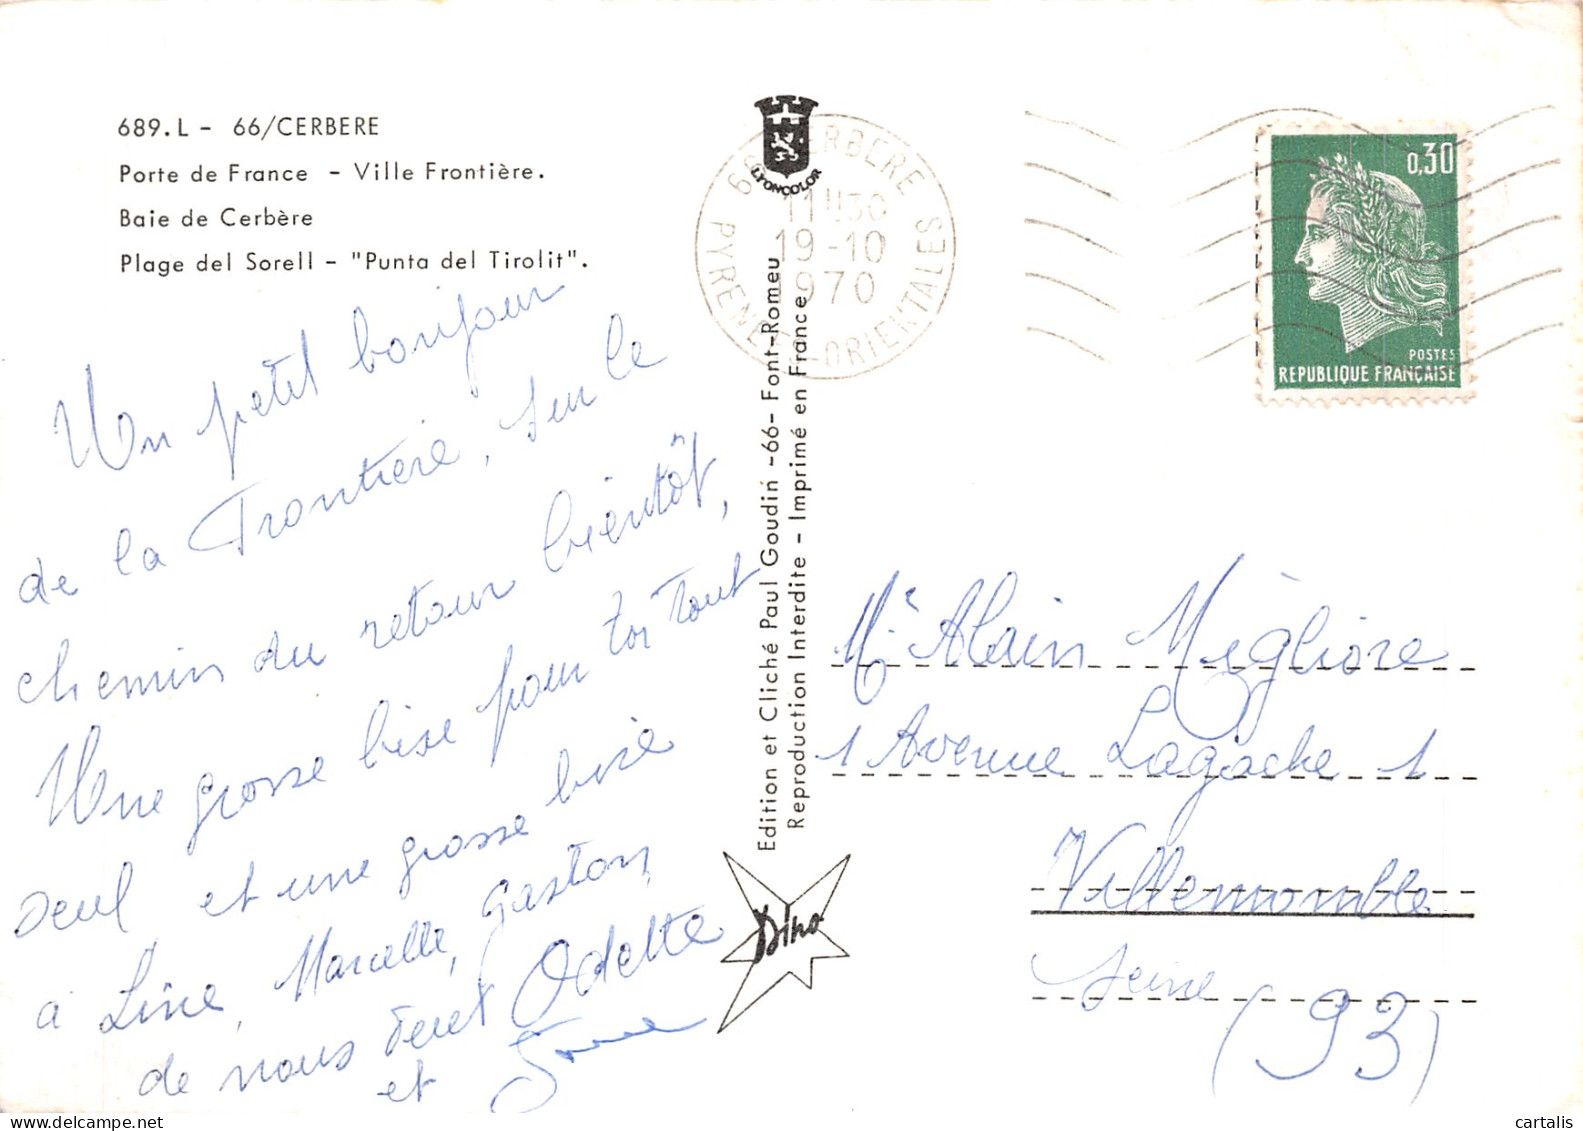 689.L - 66/CERBERE
Porte de France - Ville Frontière.
Baie de Cerbère
Plage del Sorell - "Punta del Tirolit".
Un petit bonjour
de la Frontière, sur le
chemin du retour bientôt,
Une grosse bise pour toi tout
seul et une grosse bise
à Line, Marcelle, Gaston,
de nous deux Odette
et
LYONCOLOR
66 CERBERE
11H30
19-10
1970
PYRENEES-ORIENTALES
Edition et Cliché Paul Goudin -66- Font-Romeu
Reproduction Interdite - Imprimé en France
Dino
0,30
POSTES
REPUBLIQUE FRANÇAISE
Mr Alain Migliore
1 Avenue Lagache 1
Villemomble
Seine (93)
cartalis
www.delcampe.net